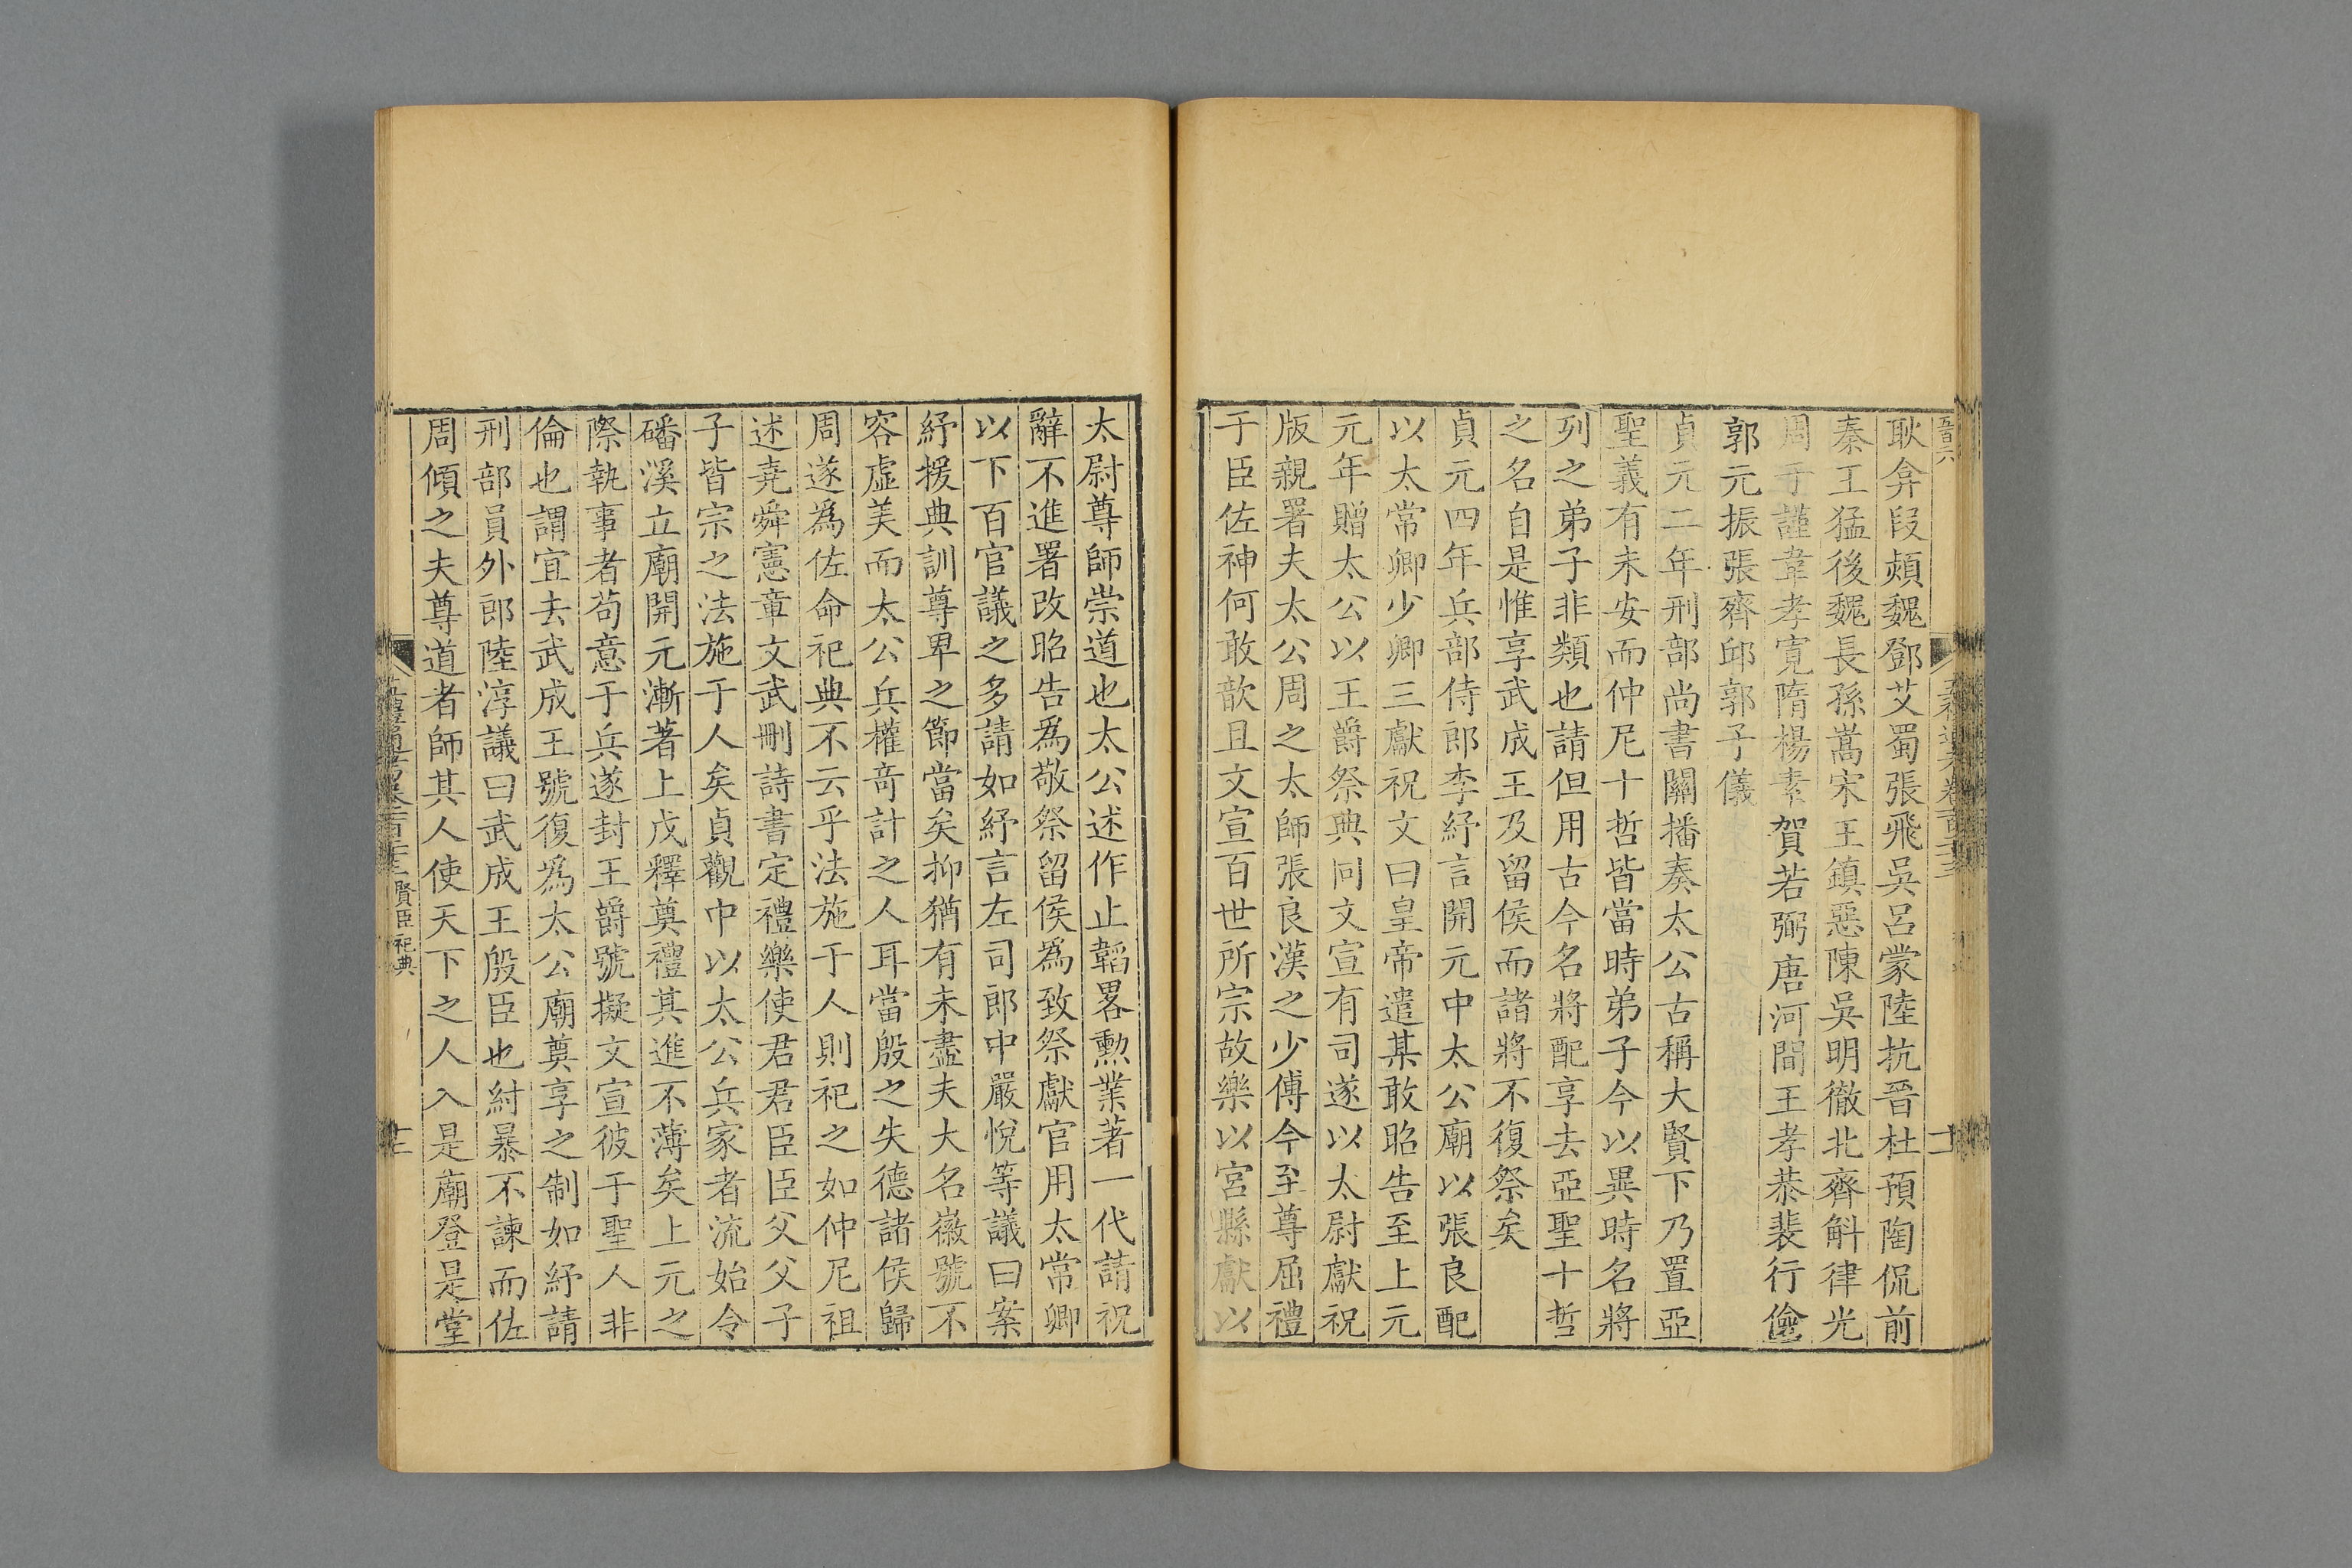 耿弇段熲魏鄧艾蜀張飛吳呂蒙陸抗晉杜預陶侃前
秦王猛後魏長孫嵩宋王鎮惡陳吳明徹北齊斛律光
周于謹韋孝寛隋楊素賀若弼唐河間王孝恭裴行儉
郭元振張齊邱郭子儀
貞元二年刑部尚書關播奏太公古稱大賢下乃置亞
聖義有未安而仲尼十哲皆當時弟子今以異時名將
列之弟子非類也請但用古今名將配享去亞聖十哲
之名自是惟享武成王及留侯而諸將不復祭矣
貞元四年兵部侍郎李紓言開元中太公廟以張良配
以太常卿少卿三獻祝文曰皇帝遣某敢昭告至上元
元年贈太公以王爵祭典同文宣有司遂以太尉獻祝
版親署夫太公周之太師張良漢之少傅今至尊屈禮
于臣佐神何敢歆且文宣百世所宗故樂以宮縣獻以
太尉尊師崇道也太公述作止韜畧勲業著一代請祝
辭不進署改昭告爲敬祭留侯爲致祭獻官用太常卿
以下百官議之多請如紓言左司郎中嚴悅等議曰案
紓援典訓尊卑之節當矣抑猶有未盡夫大名徽號不
容虛美而太公兵權奇計之人耳當殷之失德諸侯歸
周遂爲佐命祀典不云乎法施于人則祀之如仲尼祖
述堯舜憲章文武刪詩書定禮樂使君君臣臣父父子
子皆宗之法施于人矣貞觀中以太公兵家者流始令
磻溪立廟開元漸著上戊釋奠禮其進不薄矣上元之
際執事者苟意于兵遂封王爵號擬文宣彼于聖人非
倫也謂宜去武成王號復爲太公廟奠享之制如紓請
刑部員外郎陸淳議曰武成王殷臣也紂暴不諫而佐
周傾之夫尊道者師其人使天下之人入是廟登是堂
賢臣祀典